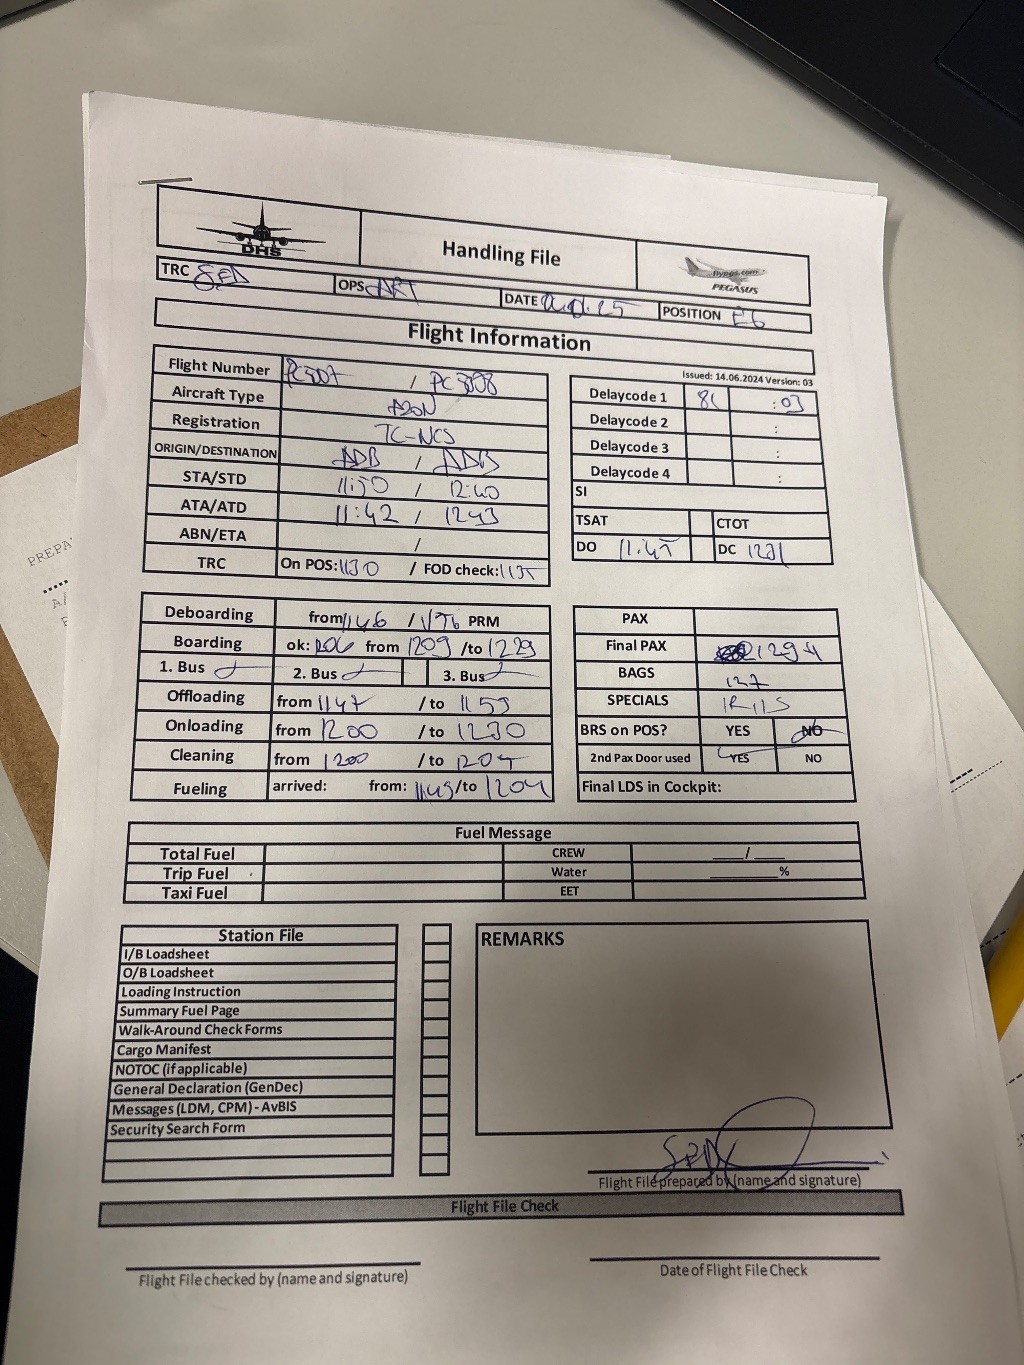 DHS
Handling File
flypgs.com
PEGASUS
TRC
OPS
DATE
POSITION E6
Flight Information
Issued: 14.06.2024 Version: 03
Flight Number / PC
Aircraft Type A20N
Registration TC-NCS
ORIGIN/DESTINATION ADB / ADB
STA/STD 11:50 / 12:40
ATA/ATD 11:42 / 1243
ABN/ETA /
TRC On POS: 1130 / FOD check: 1135
Delaycode 1 : 03
Delaycode 2 :
Delaycode 3 :
Delaycode 4 :
SI
TSAT CTOT
DO 11:45 DC
Deboarding from 1146 / PRM
Boarding ok: 1206 from 1209 /to 1229
1. Bus 2. Bus 3. Bus
Offloading from 1147 /to 1159
Onloading from 1200 /to 1230
Cleaning from 1200 /to
Fueling arrived: from: 1149 /to 1204
PAX
Final PAX
BAGS 127
SPECIALS
BRS on POS? YES NO
2nd Pax Door used YES NO
Final LDS in Cockpit:
Fuel Message
Total Fuel CREW ____/____
Trip Fuel Water ________%
Taxi Fuel EET
Station File
I/B Loadsheet
O/B Loadsheet
Loading Instruction
Summary Fuel Page
Walk-Around Check Forms
Cargo Manifest
NOTOC (if applicable)
General Declaration (GenDec)
Messages (LDM, CPM) - AvBIS
Security Search Form
REMARKS
Flight File prepared by (name and signature)
Flight File Check
Flight File checked by (name and signature)
Date of Flight File Check
PREPA